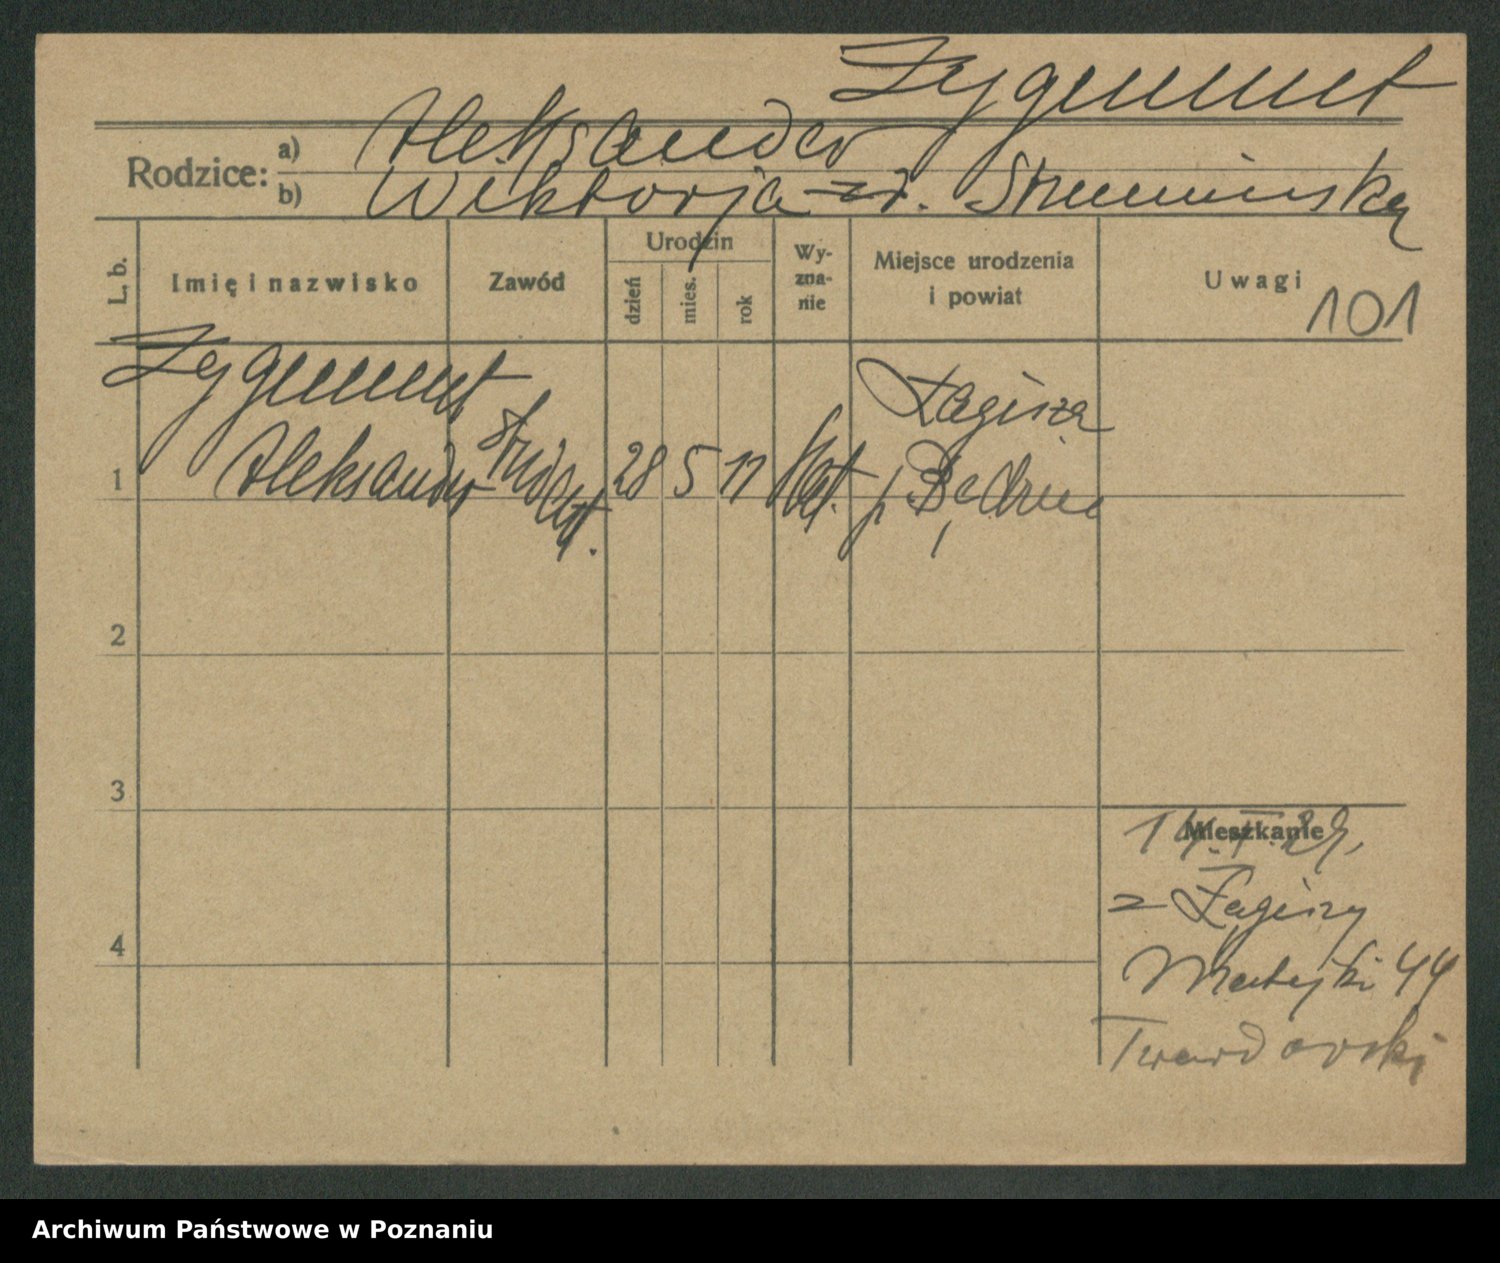 Zygmunt
Rodzice: a) Aleksander
b) Wiktorja zd. Strumińska
L. b. Imię i nazwisko Zawód Urodzin dzień mies. rok Wy-zna-nie Miejsce urodzenia i powiat Uwagi 101
Zygmunt Łagisza
1 Aleksander student. 28 5 17 kat. p. Będzin
2
3
Mieszkanie
z Łagiszy
4
Matejki 44
Twardowski
Archiwum Państwowe w Poznaniu